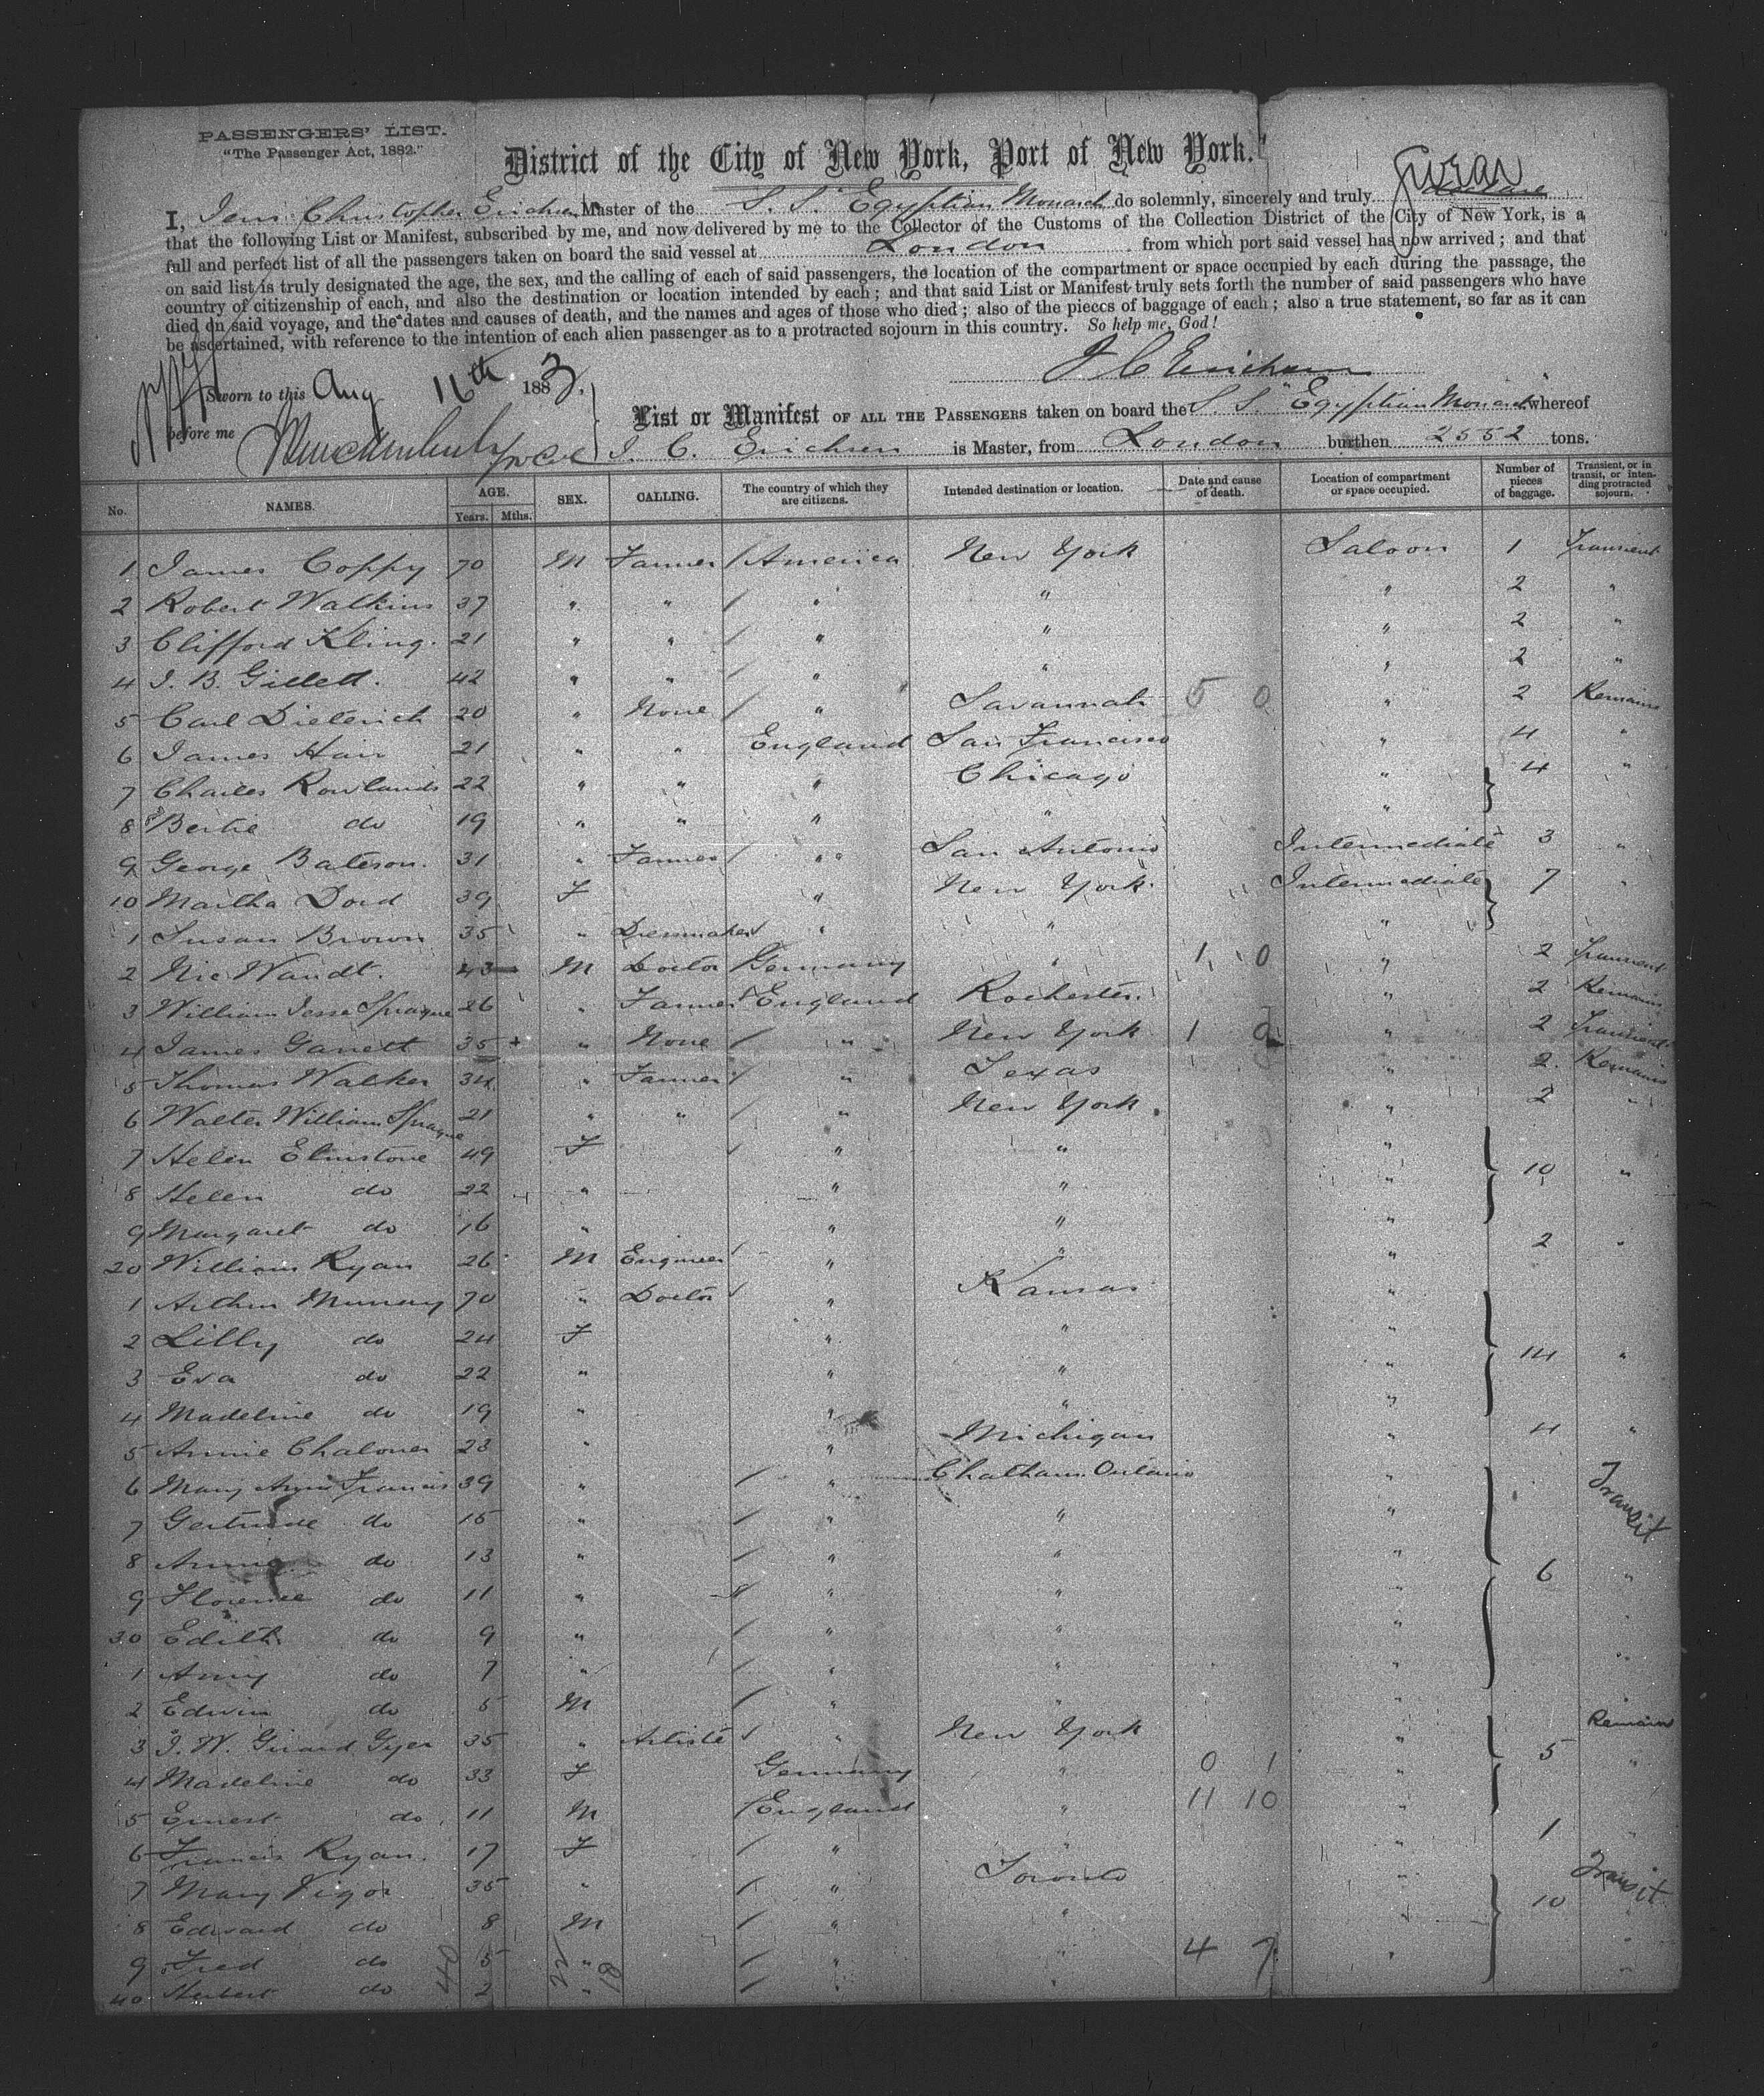 PASSENGERS' LIST.
"The Passenger Act, 1882."
District of the City of New York, Port of New York.
swear
I, Jens Christopher Erichsen Master of the S. S. "Egyptian Monarch do solemnly, sincerely and truly
that the following List or Manifest, subscribed by me, and now delivered by me to the Collector of the Customs of the Collection District of the City of New York, is a
full and perfect list of all the passengers taken on board the said vessel at London from which port said vessel has now arrived; and that
on said list is truly designated the age, the sex, and the calling of each of said passengers, the location of the compartment or space occupied by each during the passage, the
country of citizenship of each, and also the destination or location intended by each; and that said List or Manifest truly sets forth the number of said passengers who have
died on said voyage, and the dates and causes of death, and the names and ages of those who died; also of the pieces of baggage of each; also a true statement, so far as it can
be ascertained, with reference to the intention of each alien passenger as to a protracted sojourn in this country. So help me, God!
J C Erichsen
Sworn to this Aug 16th 1883.
before me
List or Manifest OF ALL THE PASSENGERS taken on board the S. S. "Egyptian Monarch whereof
J. C. Erichsen is Master, from London burthen 2552 tons.
No. NAMES. AGE. Years. Mths. SEX. CALLING. The country of which they are citizens. Intended destination or location. Date and cause of death. Location of compartment or space occupied. Number of pieces of baggage. Transient, or in transit, or intending protracted sojourn.
1 James Coppy 70 M Farmer / America New York Saloon 1 Transient
2 Robert Watkins 37 " " / " " " 2 "
3 Clifford Kling. 21 " " / " " " 2 "
4 J. B. Gillett. 42 " " / " " " 2 "
5 Carl Dieterich 20 " None / " Savannah 5 0 " 2 Remains
6 James Hair 21 " " England San Francisco " 4 "
7 Charles Rowlands 22 " " " Chicago " 4 "
8 Bertie do 19 " " " " "
9 George Bateson. 31 " Farmer / " San Antonio Intermediate 3 "
10 Martha Dord 39 F " New York. Intermediate 7 "
1 Susan Brown 35 " Dressmaker / " " "
2 Nic Wandt. 43 M Doctor / Germany " 1 0 " 2 Transient
3 William Jesse Sprague 26 " Farmer / England Rochester. " 2 Remains
4 James Garrett 35 + " None / " New York 1 0 " 2 Transient
5 Thomas Walker 34 " Farmer / " Texas " 2 Remains
6 Walter William Sprague 21 " " / " New York. " 2 "
7 Helen Elmstone 49 F / " " " 10 "
8 Helen do 22 " " " "
9 Margaret do 16 " " " "
20 William Ryan 26 M Engineer / " " " 2 "
1 Arthur Murray 70 " Doctor / " Kansas "
2 Lilly do 24 F " " "
3 Eva do 22 " " " " 14 "
4 Madeline do 19 " " " "
5 Annie Chaloner 23 " " Michigan " 4 "
6 Mary Anne Francis 39 " / " Chatham Ontario " Transit
7 Gertrude do 15 " / " " "
8 Annie do 13 " / " " "
9 Florence do 11 " / " " " 6 "
30 Edith do 9 " / " " "
1 Amy do 7 " / " " " "
2 Edwin do 5 M / " " " "
3 J. W. Girard Gyer 35 " Artiste / " New York " Remains
4 Madeline do 33 F Germany " 0 1 " 5 "
5 Ernest do 11 M / England " 11 10 "
6 Francis Ryan. 17 F / " " " 1 "
7 Mary Vigor 35 " / " Toronto " Transit
8 Edward do 8 M / " " " 10 "
9 Fred do 5 " / " " 4 7 " "
40 Herbert do 2 " / " " "
40 22 18